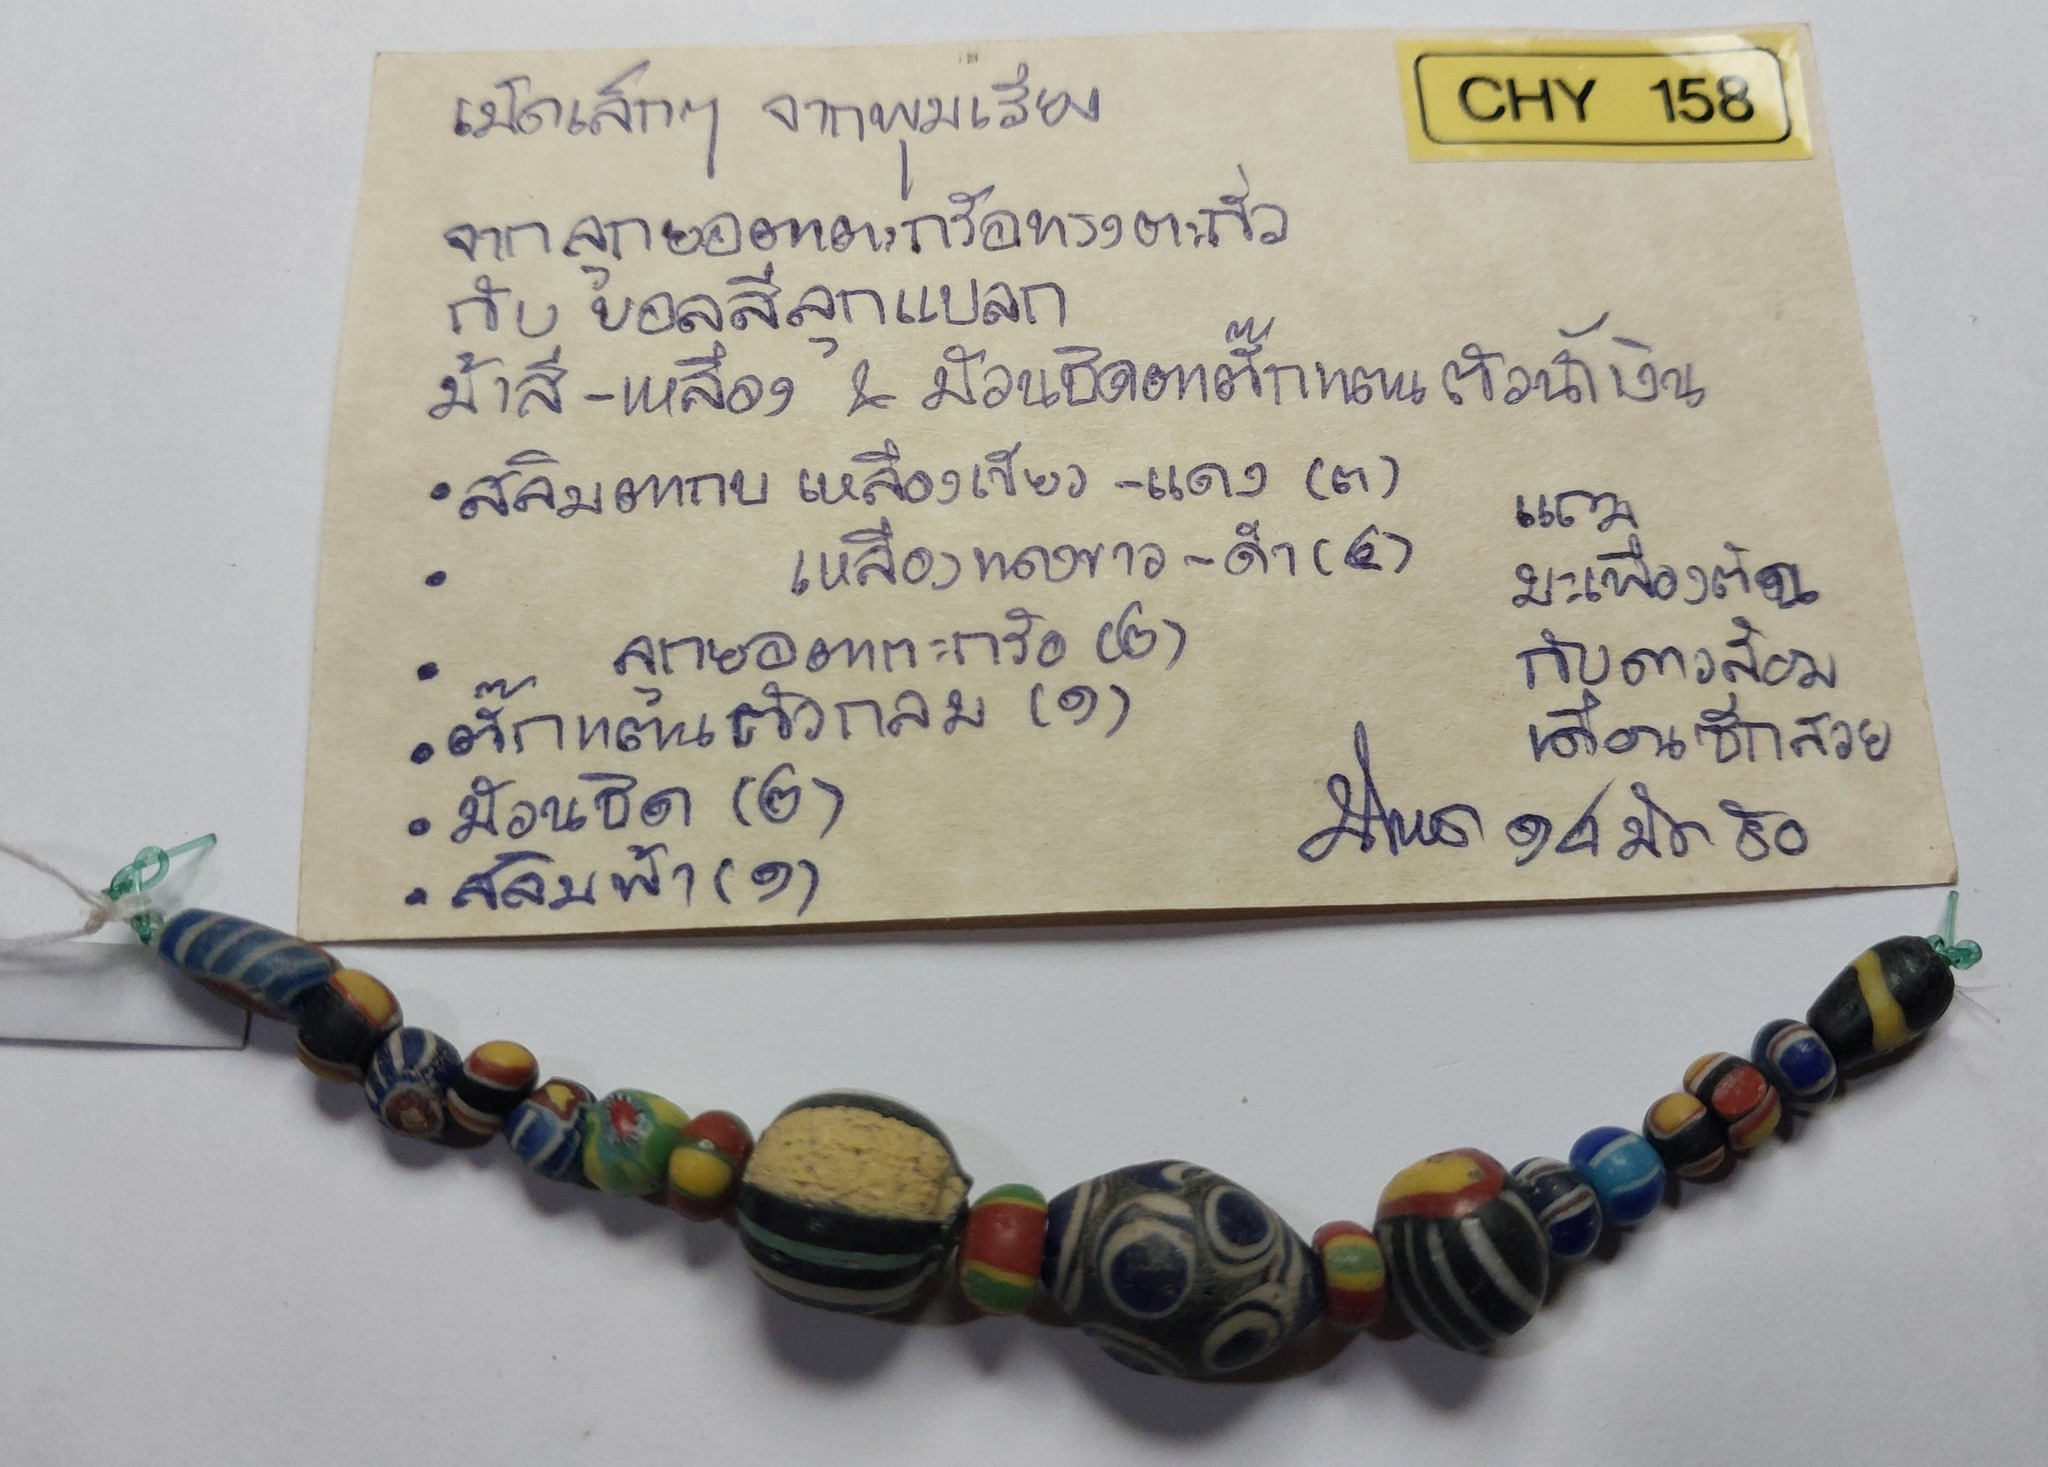 CHY 158
เม็ดเล็กๆ จากพุมเรียง
จากลูกยอตาตะกร้อทรงตะกั่ว
กับ ยอลสีลูกแปลก
ม้าสี-เหลือง & ม้วนชิดตาตั๊กแตน ตัวน้ำเงิน
• สลิมตากบ เหลืองเขียว-แดง (๓)
• เหลืองแดงขาว-ดำ (๔)
• ลูกยอตาตะกร้อ (๒)
• ตั๊กแตนตัวกลม (๑)
• ม้วนชิด (๒)
• สลิมฟ้า (๑)
แถม
มะเฟืองตัด
กับดาวล้อม
เดือนซีกสวย
๑๔
๕๐